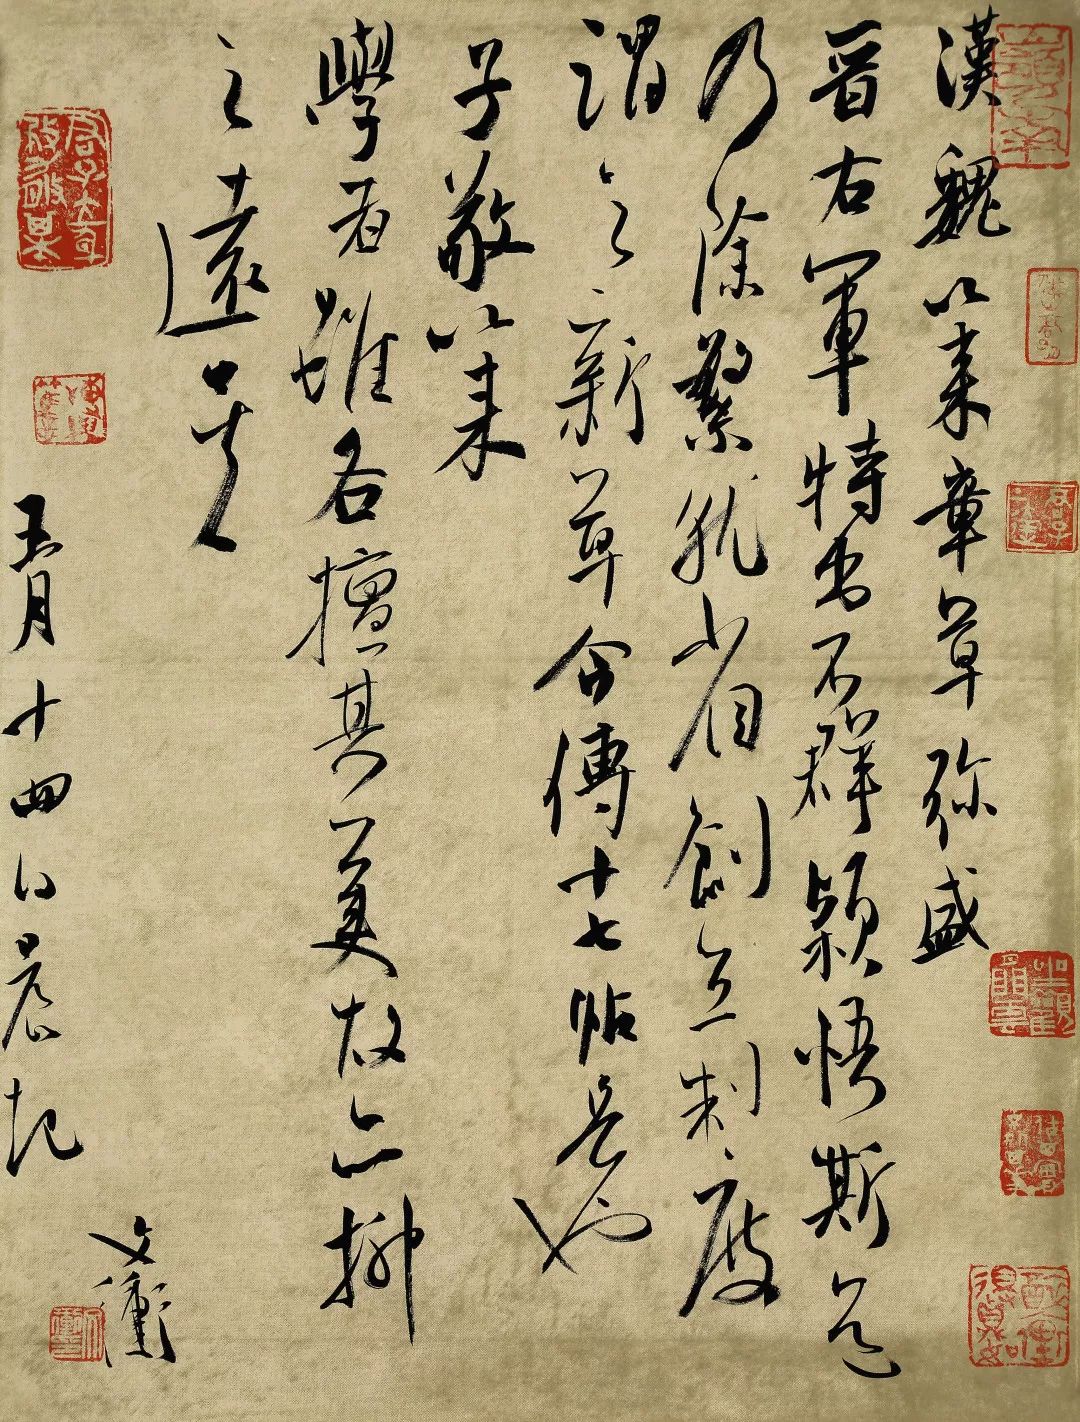 漢魏以来章草弥盛
晉右軍特出不群穎悟斯道
乃除繁就省創立制度
謂之新草今傳十七帖是也
子敬以来
學者雖各擅其美故亦抑
之遠矣
五月十四日晨記
文衡